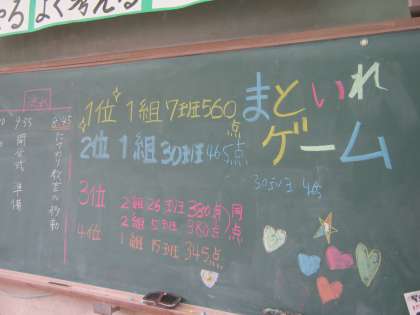 よく考える
まといれ
ゲーム
1位 1組 7班 560点
2位 1組 30班 465点
30班 4点
3位 2組 26班 380点
2組 5班 380点
同点
4位 1組 15班 345点
8:45
9:35
開会式 準備